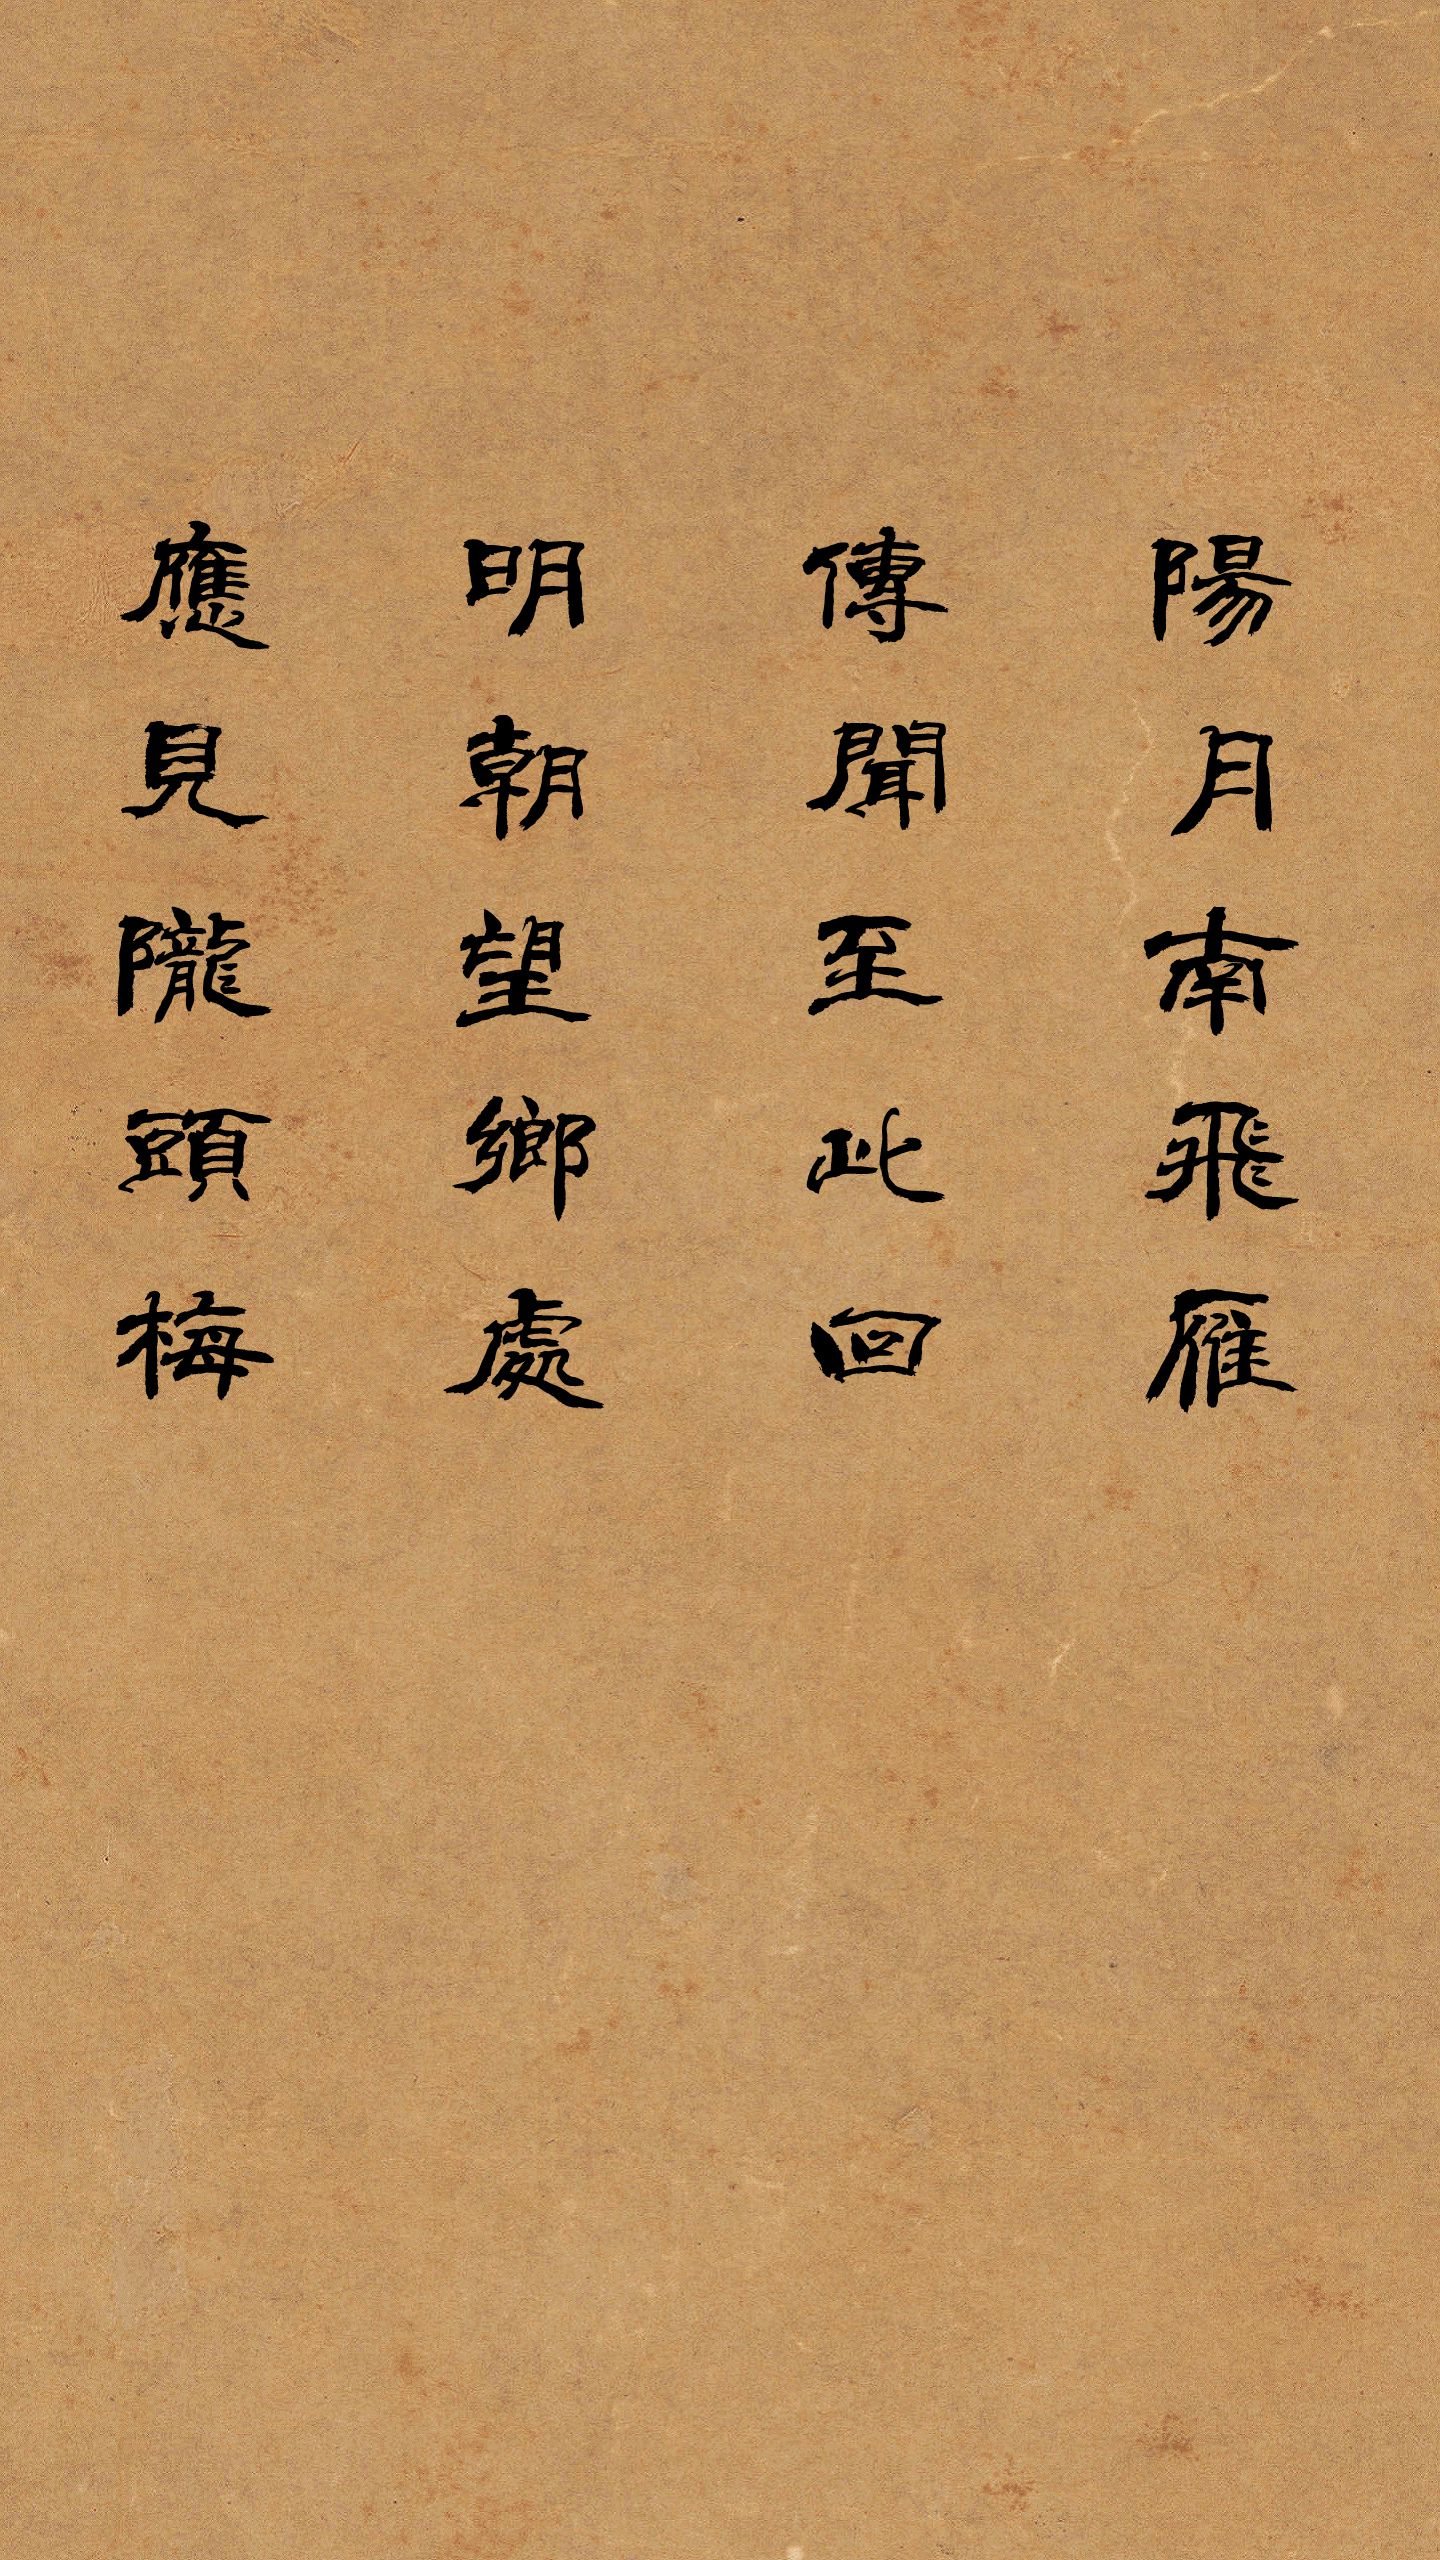 陽月南飛雁
傳聞至此回
明朝望鄉處
應見隴頭梅